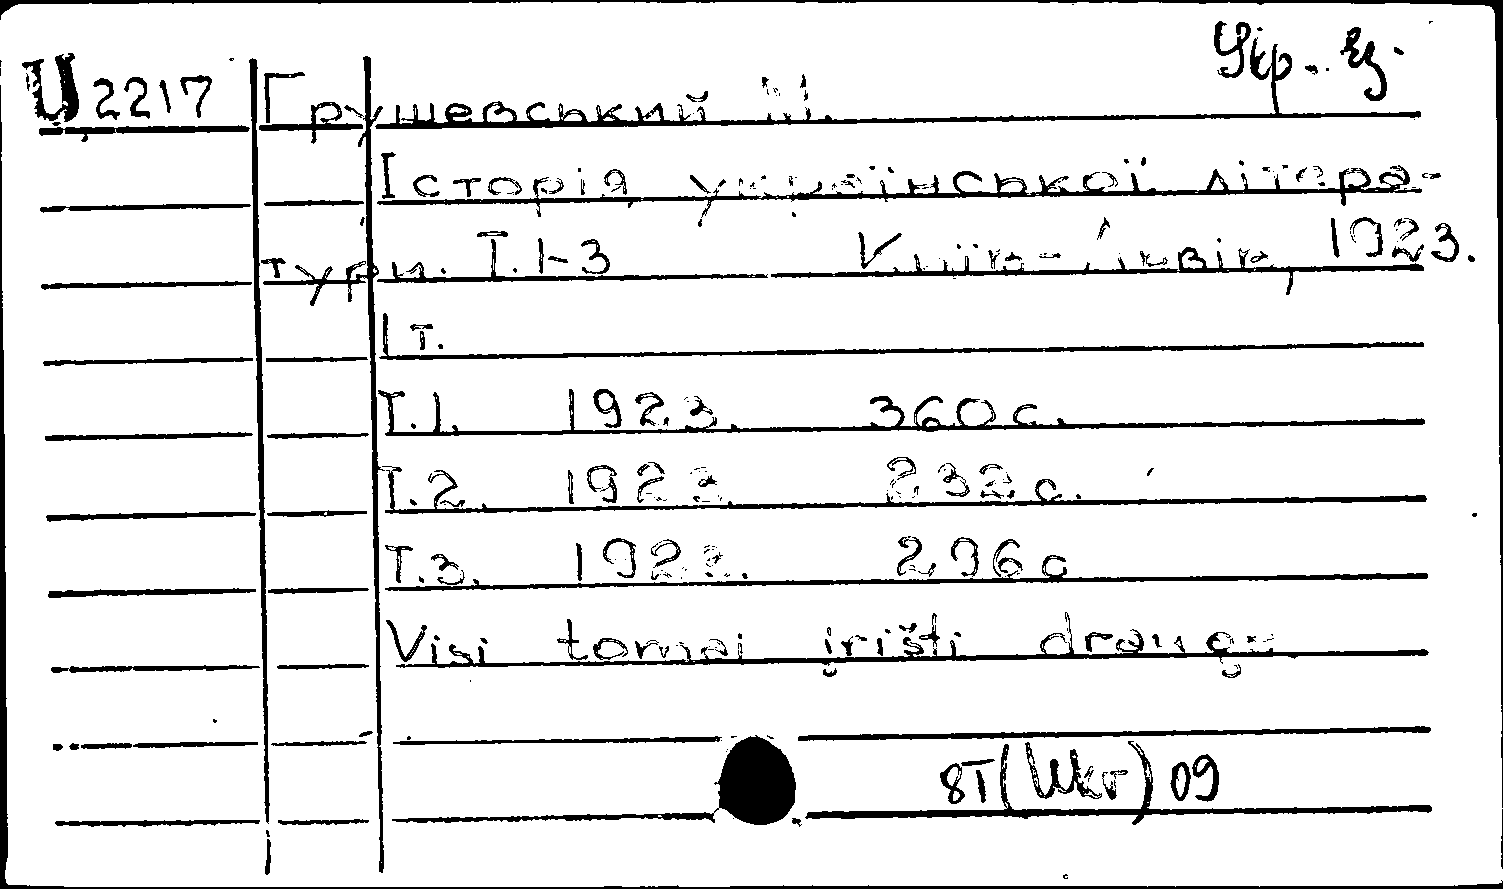 Укр. яз.
U 2217 Грушевський М.
Історія української літера-
тури. Т. 1-3 Київ-Львів, 1923.
1 т.
Т. 1. 1923. 360 с.
Т. 2. 1923. 232 с.
Т. 3. 1923. 296 с
Visi tomai įrišti draugu
8T(Ukr) 09